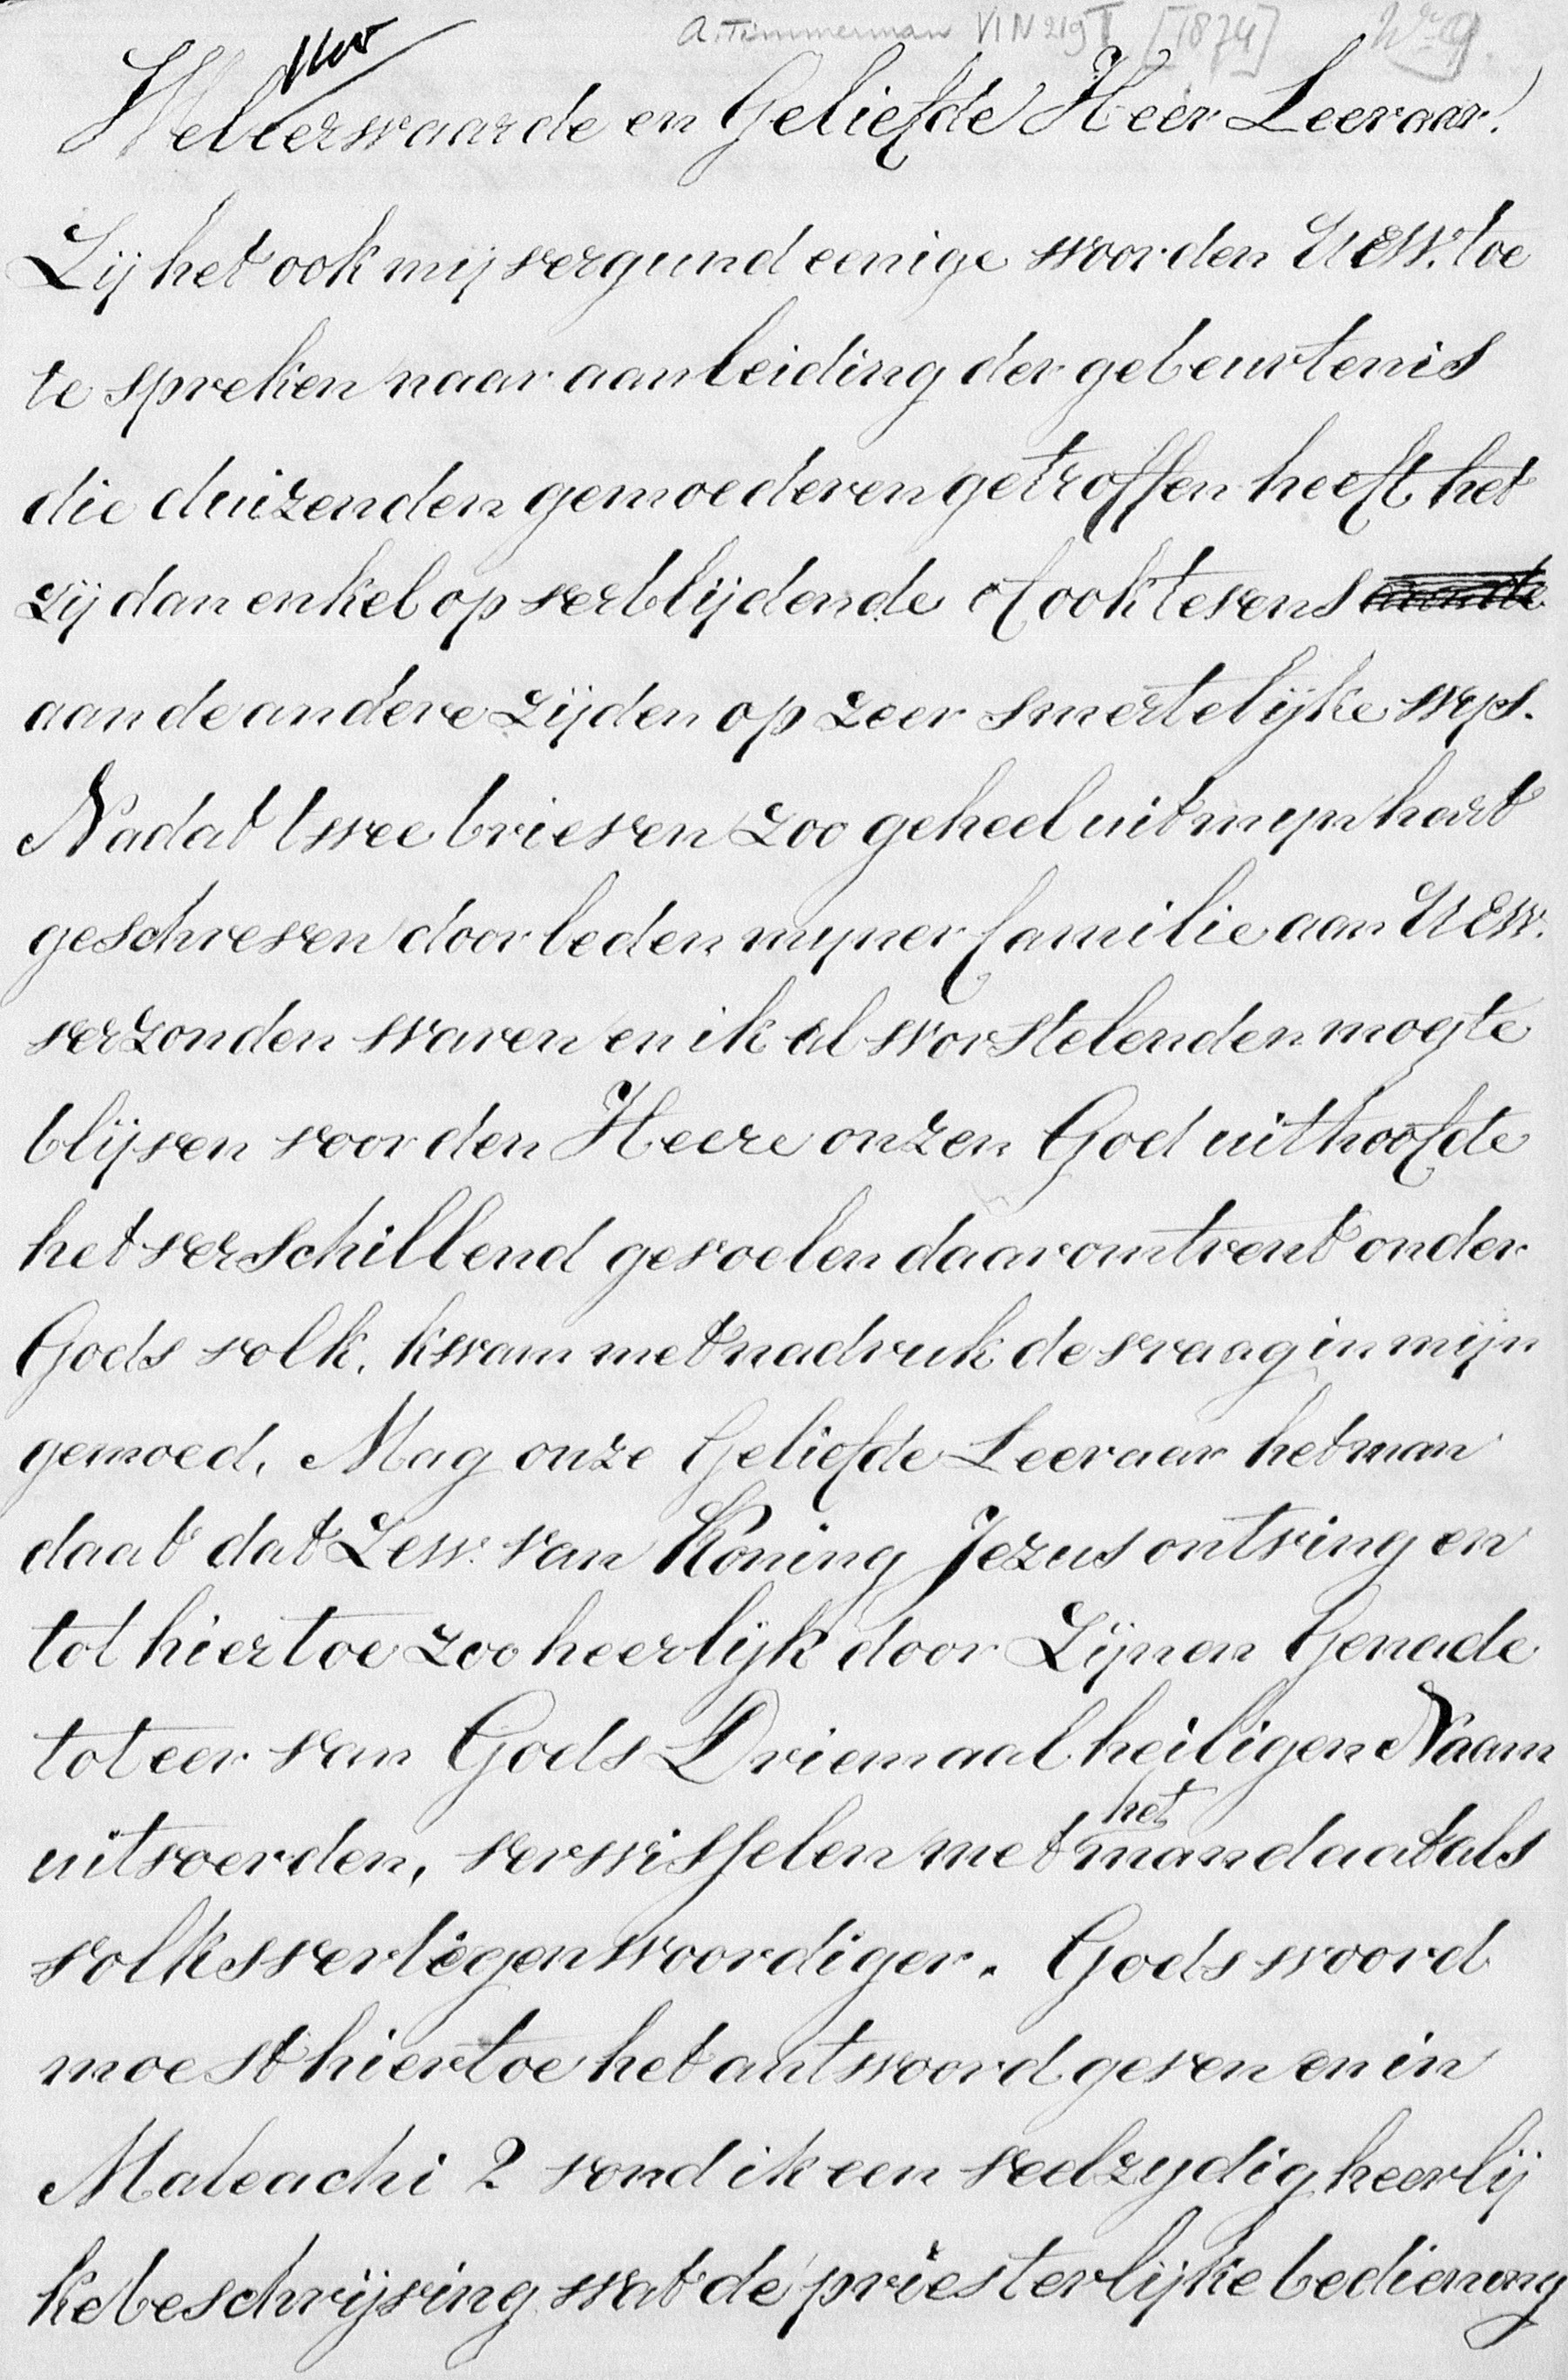 A. Timmerman VIN219I [1874]
Weleerwaarde en Geliefde Heer Leeraar!
Zij het ook mij vergund eenige woorden UEW. toe
te spreken naar aanleiding der gebeurtenis
die duizenden gemoederen getroffen heeft het
zij dan enkel op verblijdende of ook tevens
aan de andere zijden op zeer smertelijke wijs.
Nadat twee brieven zoo geheel uit mijn hart
geschreven door leden mijner familie aan UEW.
verzonden waren en ik al worstelenden mogte
blijven voor den Heere onzen God uit hoofde
het verschillend gevoelen daaromtrent onder
Gods volk, kwam met nadruk de vraag in mijn
gemoed, Mag onze Geliefde Leeraar het man
daat dat Zew. van Koning Jezus ontving en
tot hiertoe zoo heerlijk door Zijnen Genade
tot eer van Gods Driemaal heiligen Naam
uitvoerden, verwisselen met het mandaat als
volksvertegenwoordiger. Gods woord
moest hiertoe het antwoord geven en in
Maleachi 2 vond ik een veelzydig heerlij
ke beschrijving wat de priesterlijke bediening